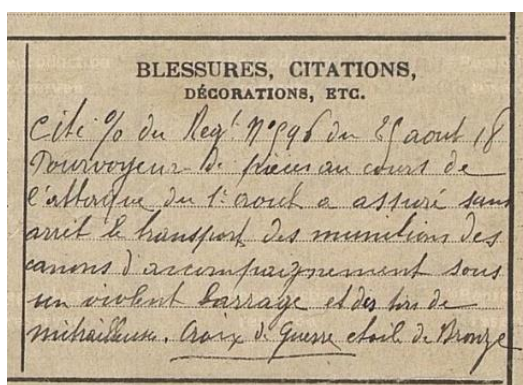 BLESSURES, CITATIONS,
DÉCORATIONS, ETC.
Cité % du Regt. N° 596 du 25 aout 18
Pourvoyeur de pièces au cours de
l'attaque du 1er aout a assuré sans
arrêt le transport des munitions des
canons d'accompagnement sous
un violent barrage et des tirs de
mitrailleuse. Croix de Guerre etoile de Bronze